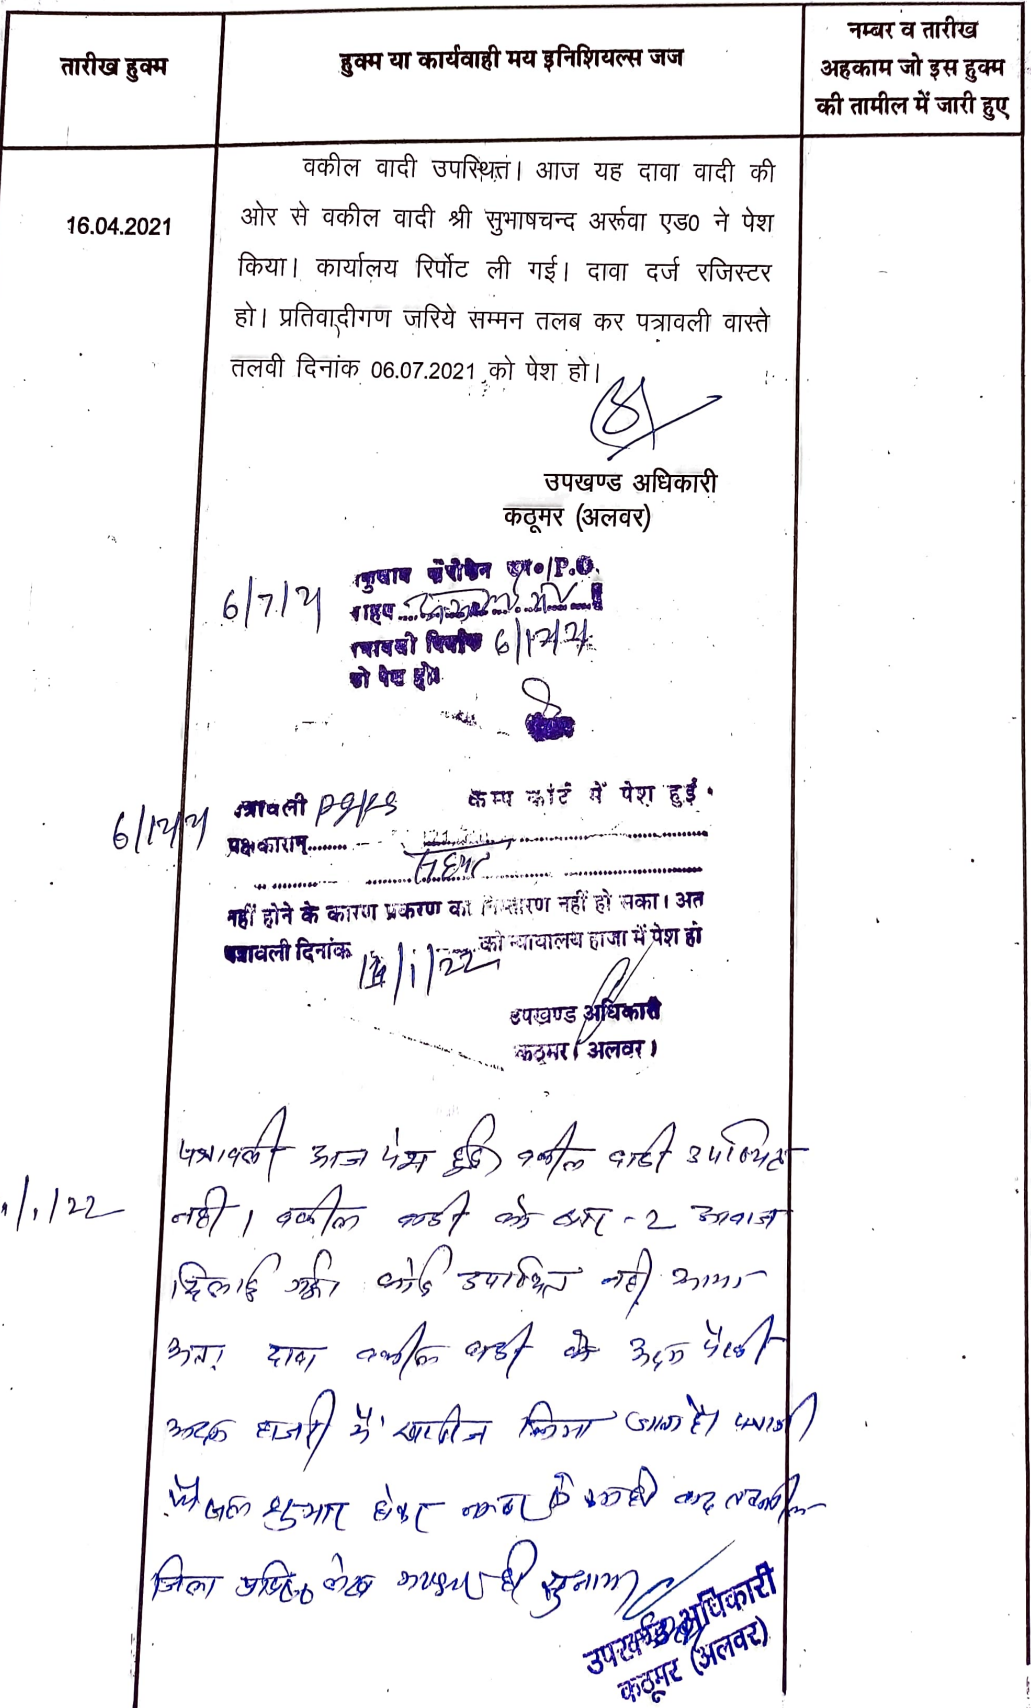 तारीख हुक्म
हुक्म या कार्यवाही मय इनिशियल्स जज
नम्बर व तारीख
अहकाम जो इस हुक्म
की तामील में जारी हुए
16.04.2021
वकील वादी उपस्थित। आज यह दावा वादी की
ओर से वकील वादी श्री सुभाषचन्द अर्रूवा एड0 ने पेश
किया। कार्यालय रिर्पोट ली गई। दावा दर्ज रजिस्टर
हो। प्रतिवादीगण जरिये सम्मन तलब कर पत्रावली वास्ते
तलवी दिनांक 06.07.2021 को पेश हो।
उपखण्ड अधिकारी
कठूमर (अलवर)
6/7/21
P.O.
6/12/21
को पेश हो।
6/12/21
पत्रावली कैम्प कोर्ट में पेश हुई.
पक्षकारान
नहीं होने के कारण प्रकरण का निस्तारण नहीं हो सका। अत
पत्रावली दिनांक 14/1/22 को न्यायालय हाजा में पेश हो
उपखण्ड अधिकारी
कठूमर (अलवर)
/1/22
पत्रावली आज पेश हुई वकील वादी उपस्थित
नही। वकील वादी को बार-2 आवाज
दिलाई गई। कोई उपस्थित नही आया
अतः दावा वकील वादी के अदम पैरवी
अदम हाजरी में खारीज किया जाता है।
फैसल शुमार होकर नम्बर से कम हो बाद
जिला लेख
उपखण्ड अधिकारी
कठूमर (अलवर)